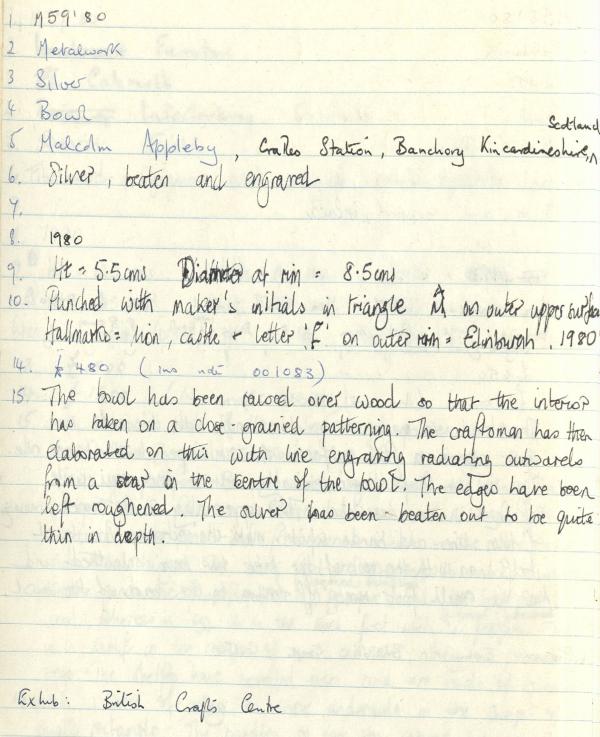 1. M59'80
2 Metalwork
3 Silver
4 Bowl
Scotland
5 Malcolm Appleby, Crathes Station, Banchory Kincardineshire, ^
6. Silver, beaten and engraved
7.
8. 1980
9. Ht = 5.5cms Diameter at rim = 8.5cms
10. Punched with maker's initials in triangle on outer upper surface
Hallmarks = lion, castle + letter 'F' on outer rim = Edinburgh, 1980
14. £480 (ins note 001083)
15. The bowl has been raised over wood so that the interior
has taken on a close-grained patterning. The craftsman has then
elaborated on this with line engraving radiating outwards
from a star in the centre of the bowl. The edges have been
left roughened. The silver has been beaten out to be quite
thin in depth.
Exhib: British Crafts Centre